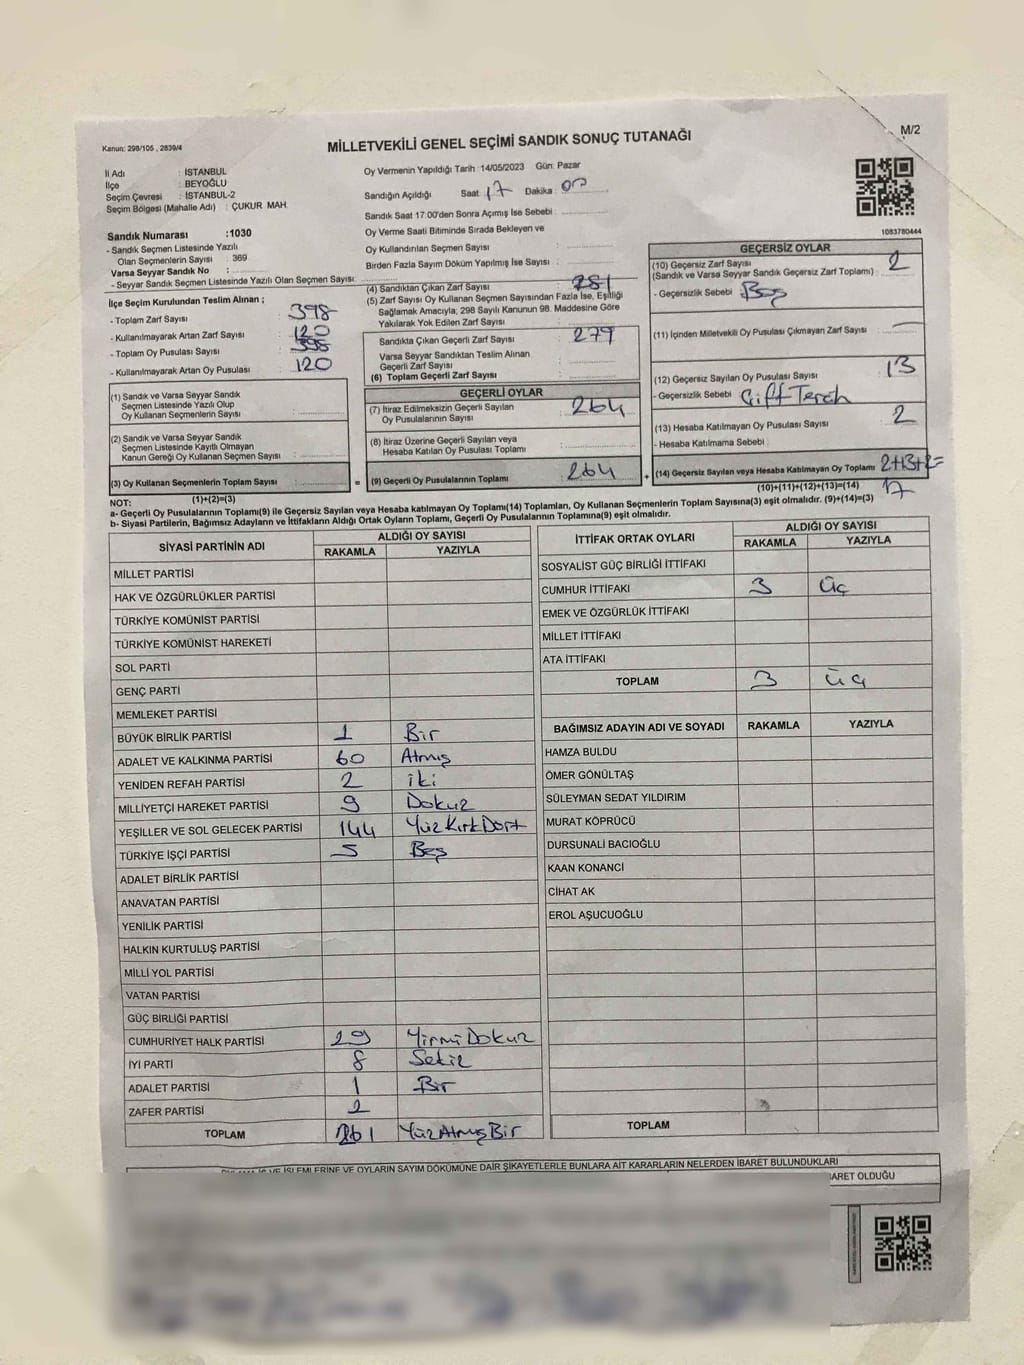 Kanun: 298/105 , 2839/4
MİLLETVEKİLİ GENEL SEÇİMİ SANDIK SONUÇ TUTANAĞI
M/2
İl Adı : İSTANBUL
İlçe : BEYOĞLU
Seçim Çevresi : İSTANBUL-2
Seçim Bölgesi (Mahalle Adı) : ÇUKUR MAH.
Oy Vermenin Yapıldığı Tarih :14/05/2023 Gün: Pazar
Sandığın Açıldığı Saat 17 Dakika : 00
Sandık Saat 17.00'den Sonra Açımış İse Sebebi :
Oy Verme Saati Bitiminde Sırada Bekleyen ve
Oy Kullandırılan Seçmen Sayısı :
Birden Fazla Sayım Döküm Yapılmış İse Sayısı :
1083780444
Sandık Numarası :1030
- Sandık Seçmen Listesinde Yazılı
Olan Seçmenlerin Sayısı : 369
Varsa Seyyar Sandık No :
- Seyyar Sandık Seçmen Listesinde Yazılı Olan Seçmen Sayısı:
İlçe Seçim Kurulundan Teslim Alınan ;
- Toplam Zarf Sayısı : 398
- Kullanılmayarak Artan Zarf Sayısı : 120
- Toplam Oy Pusulası Sayısı : 398
- Kullanılmayarak Artan Oy Pusulası : 120
(1) Sandık ve Varsa Seyyar Sandık
Seçmen Listesinde Yazılı Olup
Oy Kullanan Seçmenlerin Sayısı :
(2) Sandık ve Varsa Seyyar Sandık
Seçmen Listesinde Kayıtlı Olmayan
Kanun Gereği Oy Kullanan Seçmen Sayısı :
(3) Oy Kullanan Seçmenlerin Toplam Sayısı :
(1)+(2)=(3)
(4) Sandıktan Çıkan Zarf Sayısı : 281
(5) Zarf Sayısı Oy Kullanan Seçmen Sayısından Fazla İse, Eşitliği
Sağlamak Amacıyla; 298 Sayılı Kanunun 98. Maddesine Göre
Yakılarak Yok Edilen Zarf Sayısı :
Sandıkta Çıkan Geçerli Zarf Sayısı : 279
Varsa Seyyar Sandıktan Teslim Alınan
Geçerli Zarf Sayısı :
(6) Toplam Geçerli Zarf Sayısı :
GEÇERLİ OYLAR
(7) İtiraz Edilmeksizin Geçerli Sayılan
Oy Pusulalarının Sayısı : 264
(8) İtiraz Üzerine Geçerli Sayılan veya
Hesaba Katılan Oy Pusulaları Toplamı :
= (9) Geçerli Oy Pusulalarının Toplamı : 264
GEÇERSİZ OYLAR
(10) Geçersiz Zarf Sayısı
(Sandık ve Varsa Seyyar Sandık Geçersiz Zarf Toplamı) : 2
- Geçersizlik Sebebi : Boş
(11) İçinden Milletvekili Oy Pusulası Çıkmayan Zarf Sayısı : —
(12) Geçersiz Sayılan Oy Pusulası Sayısı : 13
- Geçersizlik Sebebi : Çift Tercih
(13) Hesaba Katılmayan Oy Pusulası Sayısı : 2
- Hesaba Katılmama Sebebi :
+ (14) Geçersiz Sayılan veya Hesaba Katılmayan Oy Toplamı : 2+13+2=
(10)+(11)+(12)+(13)=(14) 17
NOT:
a- Geçerli Oy Pusulalarının Toplamı(9) ile Geçersiz Sayılan veya Hesaba katılmayan Oy Toplamı(14) Toplamları, Oy Kullanan Seçmenlerin Toplam Sayısına(3) eşit olmalıdır. (9)+(14)=(3)
b- Siyasi Partilerin, Bağımsız Adayların ve İttifakların Aldığı Ortak Oyların Toplamı, Geçerli Oy Pusulalarının Toplamına(9) eşit olmalıdır.
SİYASİ PARTİNİN ADI ALDIĞI OY SAYISI
RAKAMLA YAZIYLA
MİLLET PARTİSİ
HAK VE ÖZGÜRLÜKLER PARTİSİ
TÜRKİYE KOMÜNİST PARTİSİ
TÜRKİYE KOMÜNİST HAREKETİ
SOL PARTİ
GENÇ PARTİ
MEMLEKET PARTİSİ
BÜYÜK BİRLİK PARTİSİ 1 Bir
ADALET VE KALKINMA PARTİSİ 60 Atmış
YENİDEN REFAH PARTİSİ 2 iki
MİLLİYETÇİ HAREKET PARTİSİ 9 Dokuz
YEŞİLLER VE SOL GELECEK PARTİSİ 144 YüzKırkDört
TÜRKİYE İŞÇİ PARTİSİ 5 Beş
ADALET BİRLİK PARTİSİ
ANAVATAN PARTİSİ
YENİLİK PARTİSİ
HALKIN KURTULUŞ PARTİSİ
MİLLİ YOL PARTİSİ
VATAN PARTİSİ
GÜÇ BİRLİĞİ PARTİSİ
CUMHURİYET HALK PARTİSİ 29 YirmiDokuz
İYİ PARTİ 8 Sekiz
ADALET PARTİSİ 1 Bir
ZAFER PARTİSİ 2
TOPLAM 261 YüzAtmışBir
İTTİFAK ORTAK OYLARI ALDIĞI OY SAYISI
RAKAMLA YAZIYLA
SOSYALİST GÜÇ BİRLİĞİ İTTİFAKI
CUMHUR İTTİFAKI 3 Üç
EMEK VE ÖZGÜRLÜK İTTİFAKI
MİLLET İTTİFAKI
ATA İTTİFAKI
TOPLAM 3 Üç
BAĞIMSIZ ADAYIN ADI VE SOYADI RAKAMLA YAZIYLA
HAMZA BULDU
ÖMER GÖNÜLTAŞ
SÜLEYMAN SEDAT YILDIRIM
MURAT KÖPRÜCÜ
DURSUNALİ BACIOĞLU
KAAN KONANCİ
CİHAT AK
EROL AŞUCUOĞLU
TOPLAM
İŞLEMLERİNE VE OYLARIN SAYIM DÖKÜMÜNE DAİR ŞİKAYETLERLE BUNLARA AİT KARARLARIN NELERDEN İBARET BULUNDUKLARI
OLDUĞU